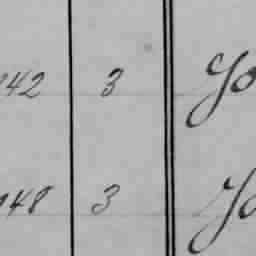 142 3 Jo
148 3 Jo